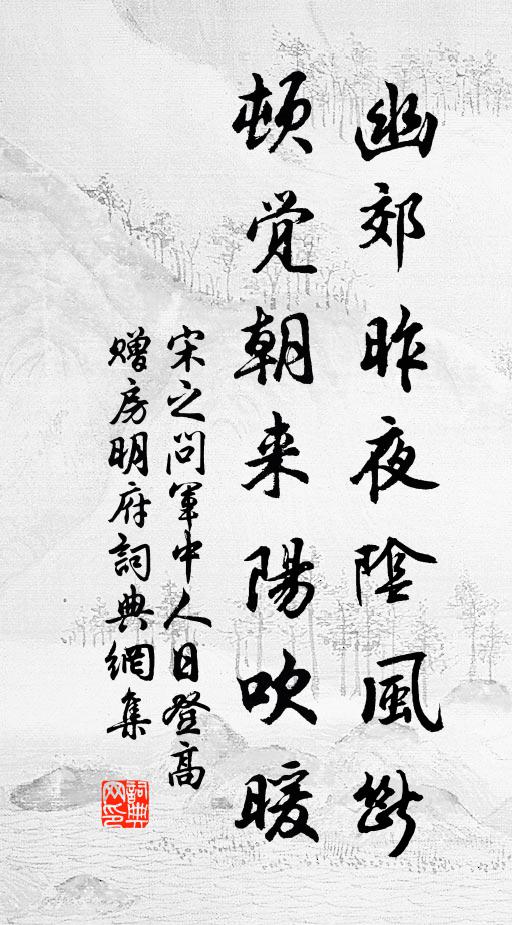 幽郊昨夜陰風斷
頓觉朝来陽吹暖
宋之问軍中人日登高
赠房明府詞典網集
詞典网印